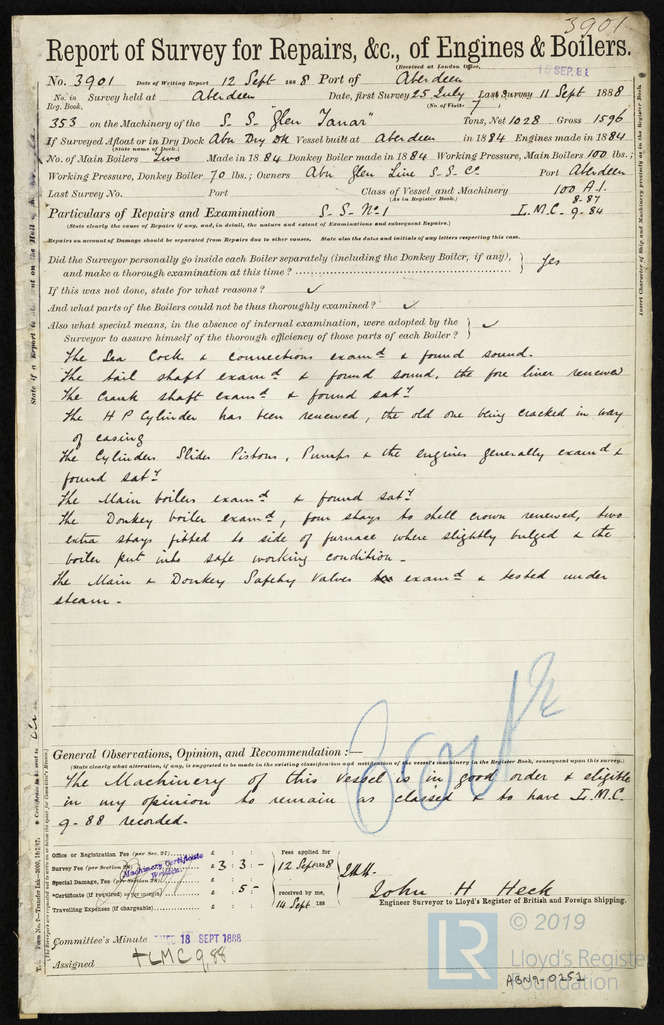 3901
Report of Survey for Repairs, &c., of Engines & Boilers.
(Received at London Office,
No. 3901 Date of Writing Report 12 Sept 1888 Port of Aberdeen
No. in Survey held at Aberdeen Date, first Survey 25 July Last Survey 11 Sept 1888
Reg. Book. (No. of Visits 7
353 on the Machinery of the S.S. "Glen Tanar" Tons, Net 1028 Gross 1596
If Surveyed Afloat or in Dry Dock Abn Dry Dk Vessel built at Aberdeen in 1884 Engines made in 1884
(State name of Dock.)
No. of Main Boilers Two Made in 1884 Donkey Boiler made in 1884 Working Pressure, Main Boilers 100 lbs.;
Working Pressure, Donkey Boiler 70 lbs.; Owners Abn Glen Line S.S. Co Port Aberdeen
Last Survey No. Port Class of Vessel and Machinery 100 A.1.
(As in Register Book.) 8-87
Particulars of Repairs and Examination S.S. No. 1 L.M.C. 9-84
(State clearly the cause of Repairs if any, and, in detail, the nature and extent of Examinations and subsequent Repairs.)
Repairs on account of Damage should be separated from Repairs due to other causes, State also the dates and initials of any letters respecting this case.
Did the Surveyor personally go inside each Boiler separately (including the Donkey Boiler, if any),
and make a thorough examination at this time? Yes
If this was not done, state for what reasons? ✓
And what parts of the Boilers could not be thus thoroughly examined? ✓
Also what special means, in the absence of internal examination, were adopted by the
Surveyor to assure himself of the thorough efficiency of those parts of each Boiler? ✓
The Sea Cocks & connections examd & found sound.
The tail shaft examd & found sound, the fore liner renewed
The Crank shaft examd & found saty
The H P Cylinder has been renewed, the old one being cracked in way
of casing
The Cylinders Slides Pistons, Pumps & the engines generally examd &
found saty
The Main boilers examd & found saty
The Donkey boiler examd, four stays to shell crown renewed, two
extra stays fitted to side of furnace where slightly bulged & the
boiler put into safe working condition.
The Main & Donkey Safety Valves examd & tested under
steam.
General Observations, Opinion, and Recommendation :—
(State clearly what alteration, if any, is suggested to be made in the existing classification and notification of the vessel's machinery in the Register Book, consequent upon this survey.)
The Machinery of this Vessel is in good order & eligible
in my opinion to remain as classed & to have L.M.C.
9-88 recorded.
Office or Registration Fee (per Sec. 27) £ : :
Survey Fee (per Section 28) £ 3 : 3 : -
Special Damage, Fee (per Section 28) £ : :
*Certificate (if required) as per margin £ : 5 -
Travelling Expenses (if chargeable) £ : :
Machinery Certificate
Written
Fees applied for
12 Sept 1888
received by me,
14 Sept 188
John H Heck
Engineer Surveyor to Lloyd's Register of British and Foreign Shipping.
Committee's Minute 18 SEPT 1888
Assigned + LMC 9.88
© 2019
LR Lloyd's Register
Foundation
ABN9-0252
Insert Character of Ship and Machinery precisely as in the Register Book.